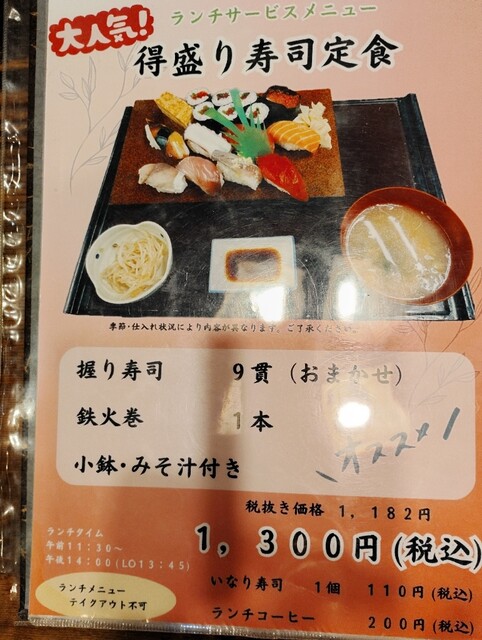 ランチサービスメニュー
大人気!
得盛り寿司定食
季節・仕入れ状況により内容が異なります。ご了承ください。
握り寿司 9貫 (おまかせ)
鉄火巻 1本
小鉢・みそ汁付き
オススメ!
税抜き価格 1,182円
1,300円(税込)
ランチタイム
午前11:30~
午後14:00(LO13:45)
いなり寿司 1個 110円(税込)
ランチメニュー
テイクアウト不可
ランチコーヒー 200円(税込)